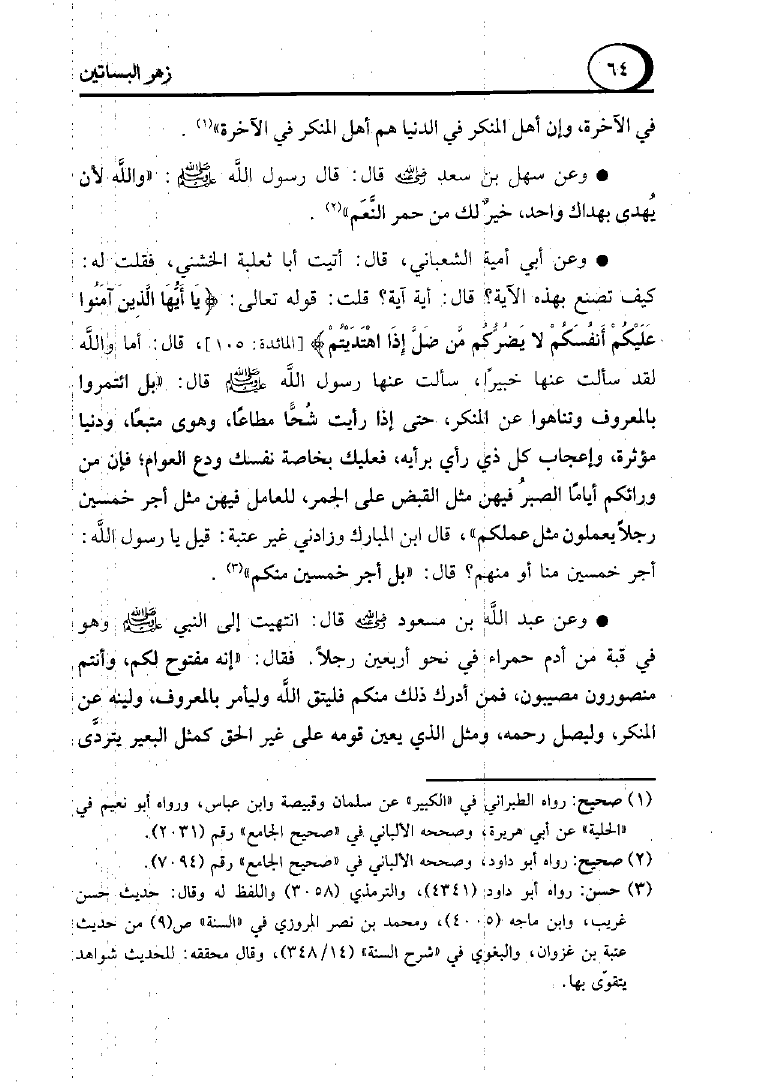 ٦٤
زهر البساتين
في الآخرة، وإن أهل المنكر في الدنيا هم أهل المنكر في الآخرة»(١) .
● وعن سهل بن سعد رضي الله عنه قال: قال رسول اللَّه ﷺ : «واللَّه لأن
يُهدى بهداك واحد، خيرٌ لك من حمر النَّعَم»(٢) .
● وعن أبي أمية الشعباني، قال: أتيت أبا ثعلبة الخشني، فقلت له:
كيف تصنع بهذه الآية؟ قال: أية آية؟ قلت: قوله تعالى: ﴿يَا أَيُّهَا الَّذِينَ آمَنُوا
عَلَيْكُمْ أَنفُسَكُمْ لا يَضُرُّكُم مَّن ضَلَّ إِذَا اهْتَدَيْتُمْ﴾ [المائدة: ١٠٥]، قال: أما واللَّه
لقد سألت عنها خبيرًا، سألت عنها رسول اللَّه ﷺ قال: «بل ائتمروا
بالمعروف وتناهوا عن المنكر، حتى إذا رأيت شُحًّا مطاعًا، وهوى متبعًا، ودنيا
مؤثرة، وإعجاب كل ذي رأي برأيه، فعليك بخاصة نفسك ودع العوام؛ فإن من
ورائكم أيامًا الصبرُ فيهن مثل القبض على الجمر، للعامل فيهن مثل أجر خمسين
رجلاً يعملون مثل عملكم»، قال ابن المبارك وزادني غير عتبة: قيل يا رسول اللَّه:
أجر خمسين منا أو منهم؟ قال: «بل أجر خمسين منكم»(٣) .
● وعن عبد اللَّه بن مسعود رضي الله عنه قال: انتهيت إلى النبي ﷺ وهو
في قبة من أدم حمراء في نحو أربعين رجلاً. فقال: «إنه مفتوح لكم، وأنتم
منصورون مصيبون، فمن أدرك ذلك منكم فليتق اللَّه وليأمر بالمعروف، ولينه عن
المنكر، وليصل رحمه، ومثل الذي يعين قومه على غير الحق كمثل البعير يتردَّى
(١) صحيح: رواه الطبراني في «الكبير» عن سلمان وقبيصة وابن عباس، ورواه أبو نعيم في
«الحلية» عن أبي هريرة، وصححه الألباني في «صحيح الجامع» رقم (٢٠٣١).
(٢) صحيح: رواه أبو داود، وصححه الألباني في «صحيح الجامع» رقم (٧٠٩٤).
(٣) حسن: رواه أبو داود (٤٣٤١)، والترمذي (٣٠٥٨) واللفظ له وقال: حديث حسن
غريب، وابن ماجه (٤٠٠٥)، ومحمد بن نصر المروزي في «السنة» ص(٩) من حديث
عتبة بن غزوان، والبغوي في «شرح السنة» (٣٤٨/١٤)، وقال محققه: للحديث شواهد
يتقوّى بها.